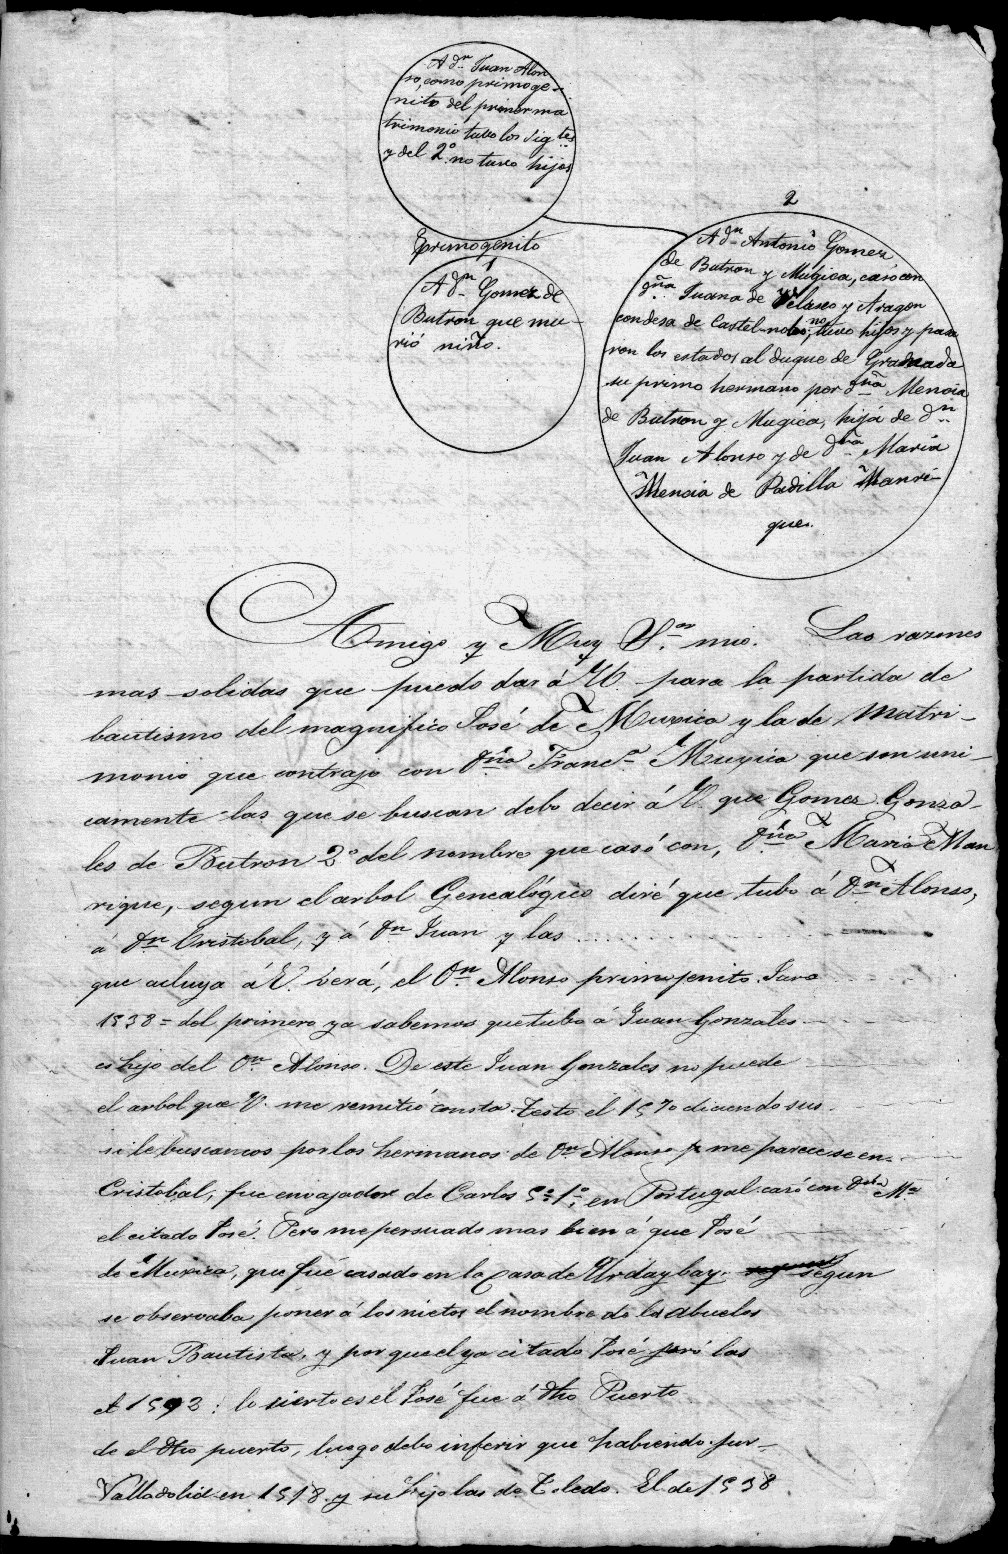 A dn. Juan Alon
so, como primoge-
nito del primer ma
trimonio tuvo los sigtes
y del 2º no tuvo hijos
Primogenito
1
A dn. Gomez de
Butron que mu-
rió niño.
2
A dn. Antonio Gomez
de Butron y Mugica, casó con
dña. Juana de Velasco y Aragon
condesa de Castel-nobo; no tuvo hijos y pasa
ron los estados al duque de Granada
su primo hermano por dña Mencia
de Butron y Mugica, hija de dn.
Juan Alonso y de dña. Maria
Mencia de Padilla Manri-
que.
Amigo y Muy Sor. mio. Las razones
mas solidas que puedo dar á V. para la partida de
bautismo del magnifico José de Muxica y la de Matri-
monio que contrajo con dña. Franca. Muxica que son uni-
camente las que se buscan debo decir á V. que Gomez Gonza-
les de Butron 2º del nombre que casó con, dña. Maria Man
rique, segun el arbol Genealógico diré que tubo á dn. Alonso,
á dn. Cristobal, y á dn Juan y las . . . . . . . . . . . . . . . .
que acluya á V. verá, el dn. Alonso primojenito. Para
1538 = del primero ya sabemos que tubo á Juan Gonzales
es hijo del dn. Alonso. De este Juan Gonzales no puede
el arbol que V. me remitió consta. Testo el 1570 diciendo sus.
si le buscamos por los hermanos de dn. Alonso me parece se en.
Cristobal, fue envajador de Carlos 5º 1º en Portugal casó con dña Ma.
el citado José. Pero me persuado mas bien á que José
de Muxica, que fué casado en la Casa de Urdaybay. segun
se observaba poner á los nietos el nombre de los abuelos
Juan Bautista, y por que el ya citado José juró las
et 1592: lo cierto es el José fue á dho Puerto
de el dho puerto, luego debo inferir que habiendo jur-
Valladolid en 1518. y su hijo las de Toledo. El de 1538.